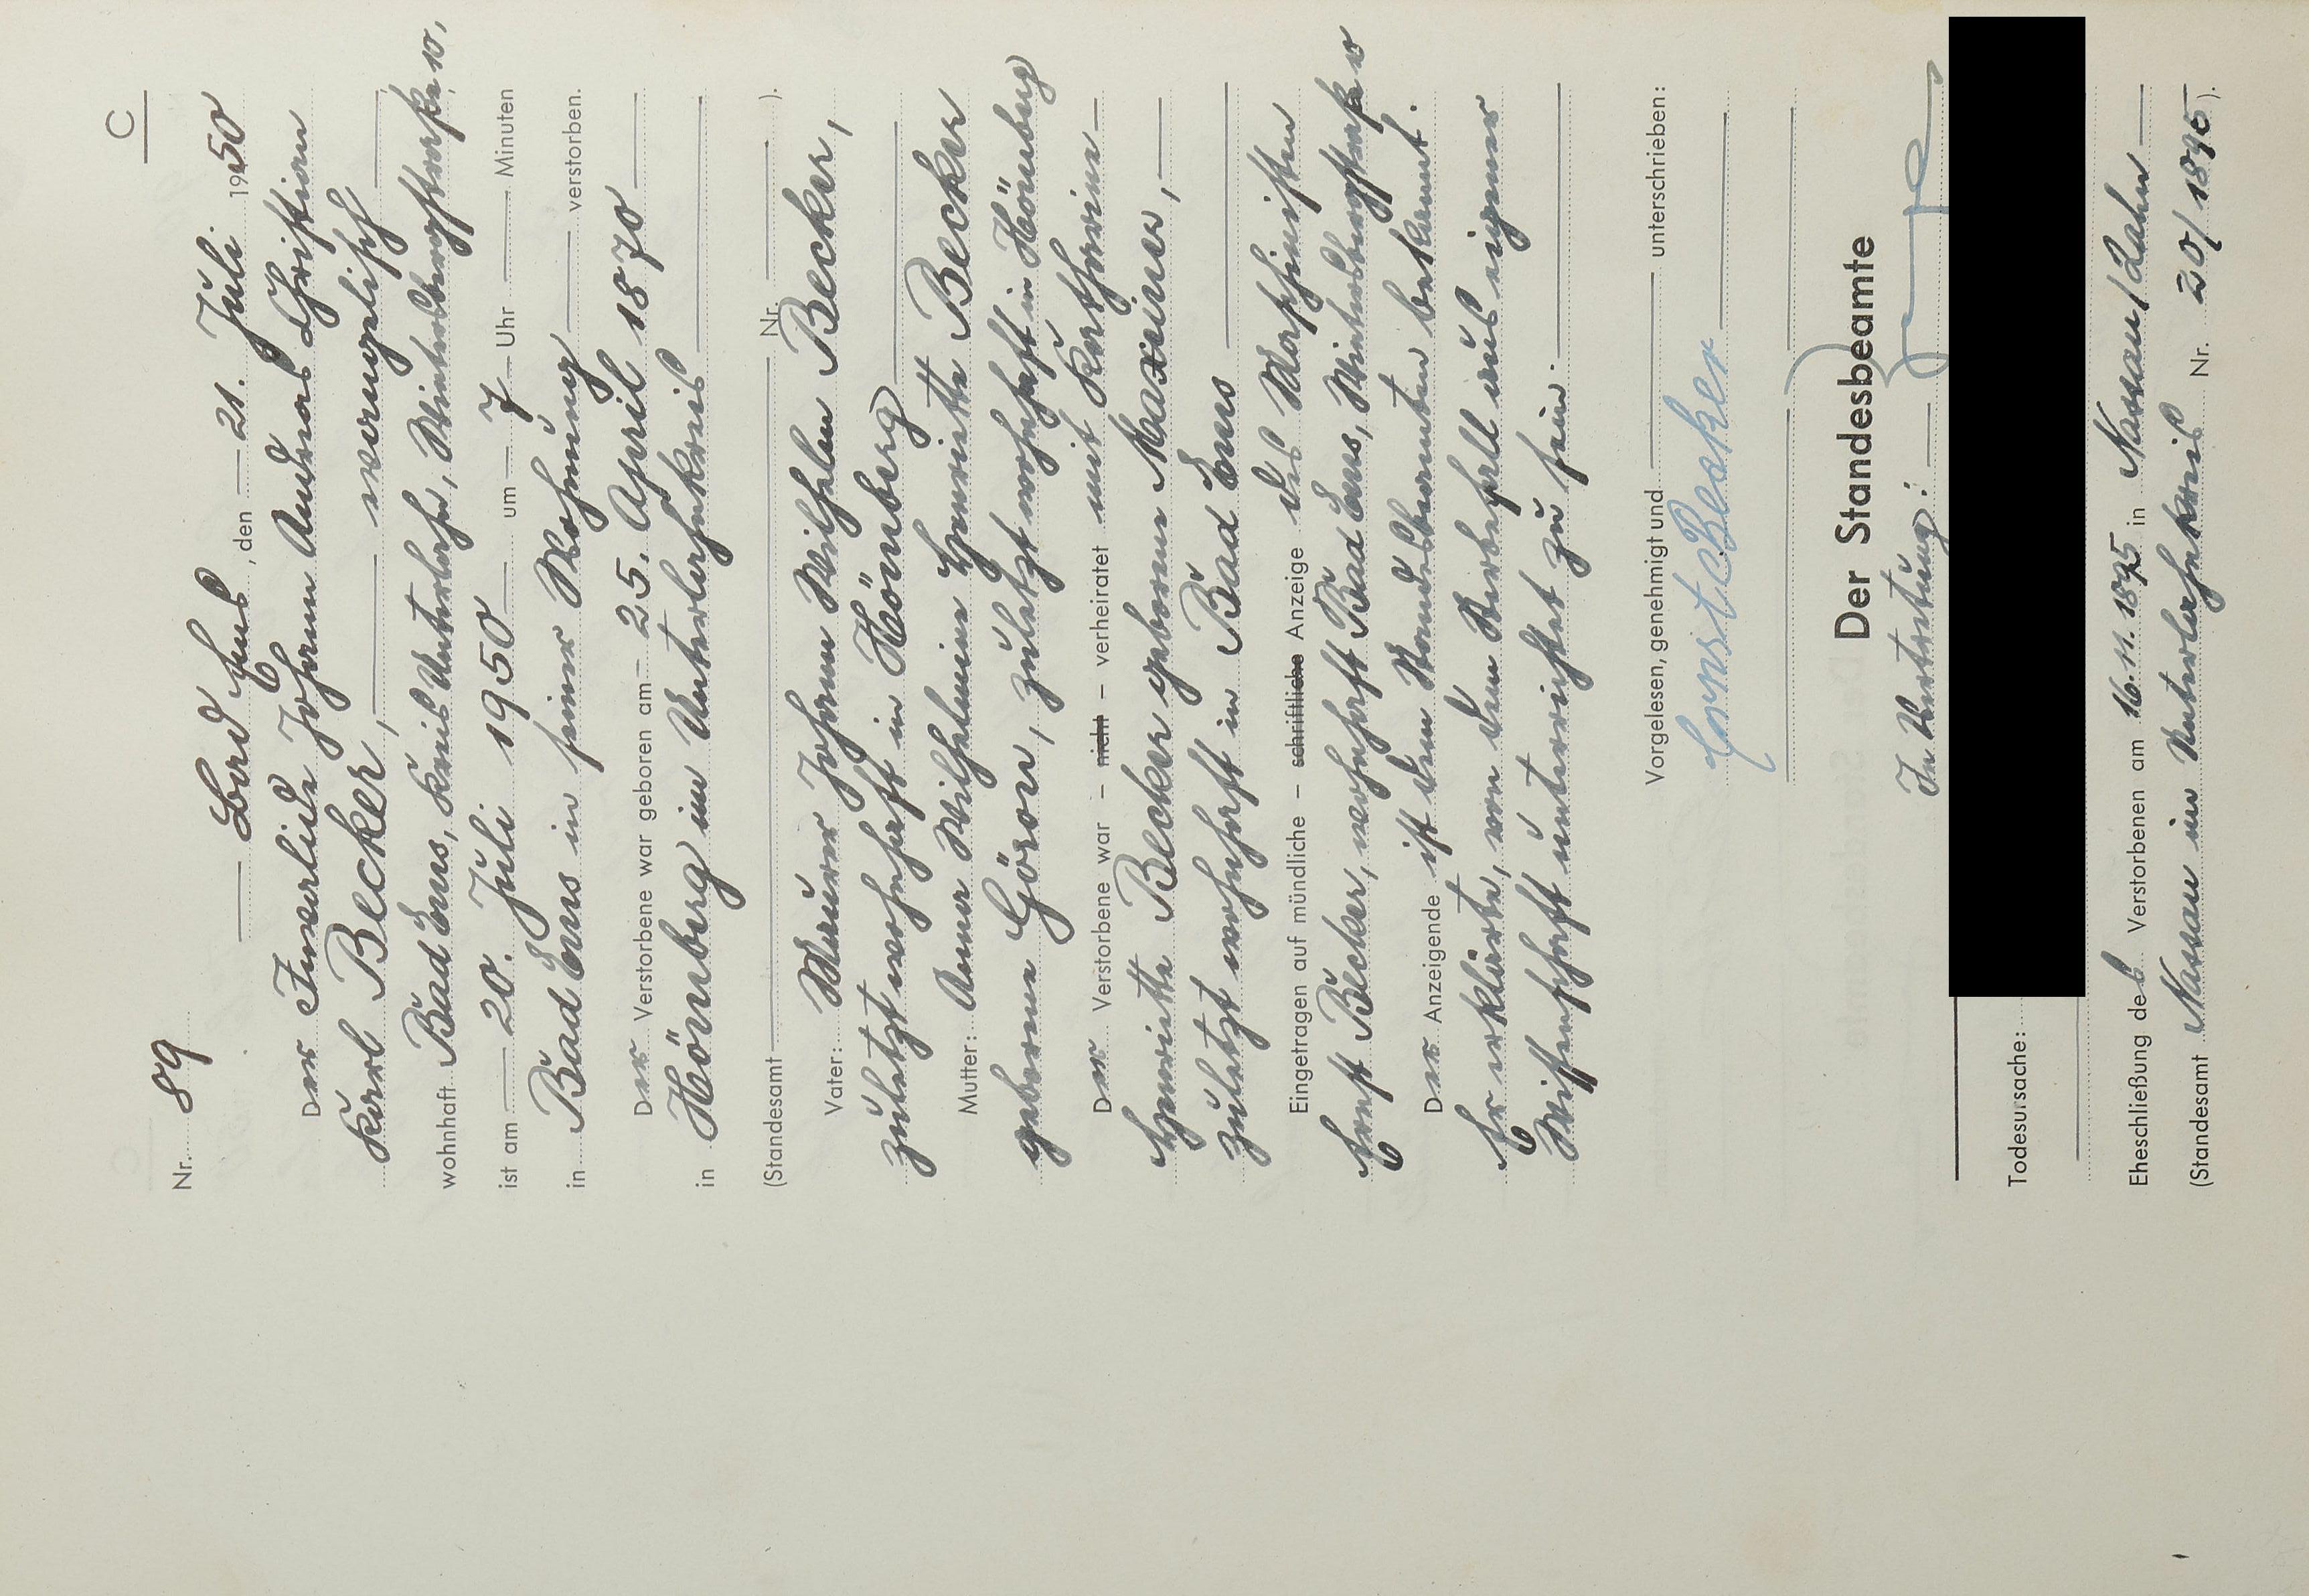 C
Nr. 89
Bad Ems, den 21. Juli 1950
Der Invalide Johann Andreas Christian
Karl Becker, evangelisch
wohnhaft Bad Ems, Kreis Unterlahn, Wintersbergstraße 10,
ist am 20. Juli 1950 um 7 Uhr Minuten
in Bad Ems in seiner Wohnung verstorben.
Der Verstorbene war geboren am 25. April 1870
in Hömberg im Unterlahnkreis
(Standesamt Nr. ).
Vater: Maurer Johann Wilhelm Becker,
zuletzt wohnhaft in Hömberg
Mutter: Anna Wilhelmine Henriette Becker
geborene Göron, zuletzt wohnhaft in Hömberg
Der Verstorbene war – nicht – verheiratet mit Katharine
Henriette Becker geborene Maxeiner,
zuletzt wohnhaft in Bad Ems
Eingetragen auf mündliche – schriftliche Anzeige des Maschinisten
Ernst Becker, wohnhaft Bad Ems, Wintersbergstraße
Der Anzeigende ist dem Standesbeamten bekannt.
Er erklärte, von dem Sterbefall aus eigener
Wissenschaft unterrichtet zu sein.
Vorgelesen, genehmigt und unterschrieben:
Ernst Becker
Der Standesbeamte
In Vertretung:
Todesursache:
Eheschließung des Verstorbenen am 16.11.1895 in Nassau/Lahn
(Standesamt Nassau im Unterlahnkreis Nr. 20/1895).